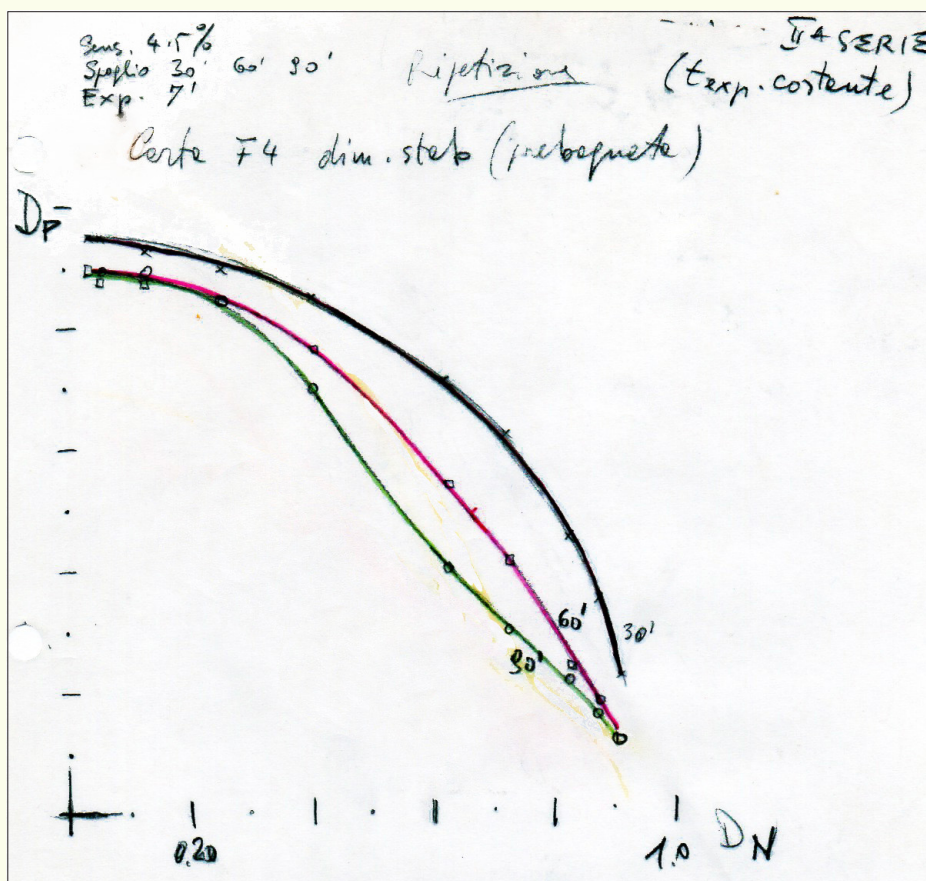 IIa SERIE
Sens. 4.5%
Spoglio 30' 60' 90'
Exp. 7'
Ripetizione
(t exp. costante)
Carta F4 dim. stab (prebagnata)
DP
60'
30'
90'
0.20
1.0
DN